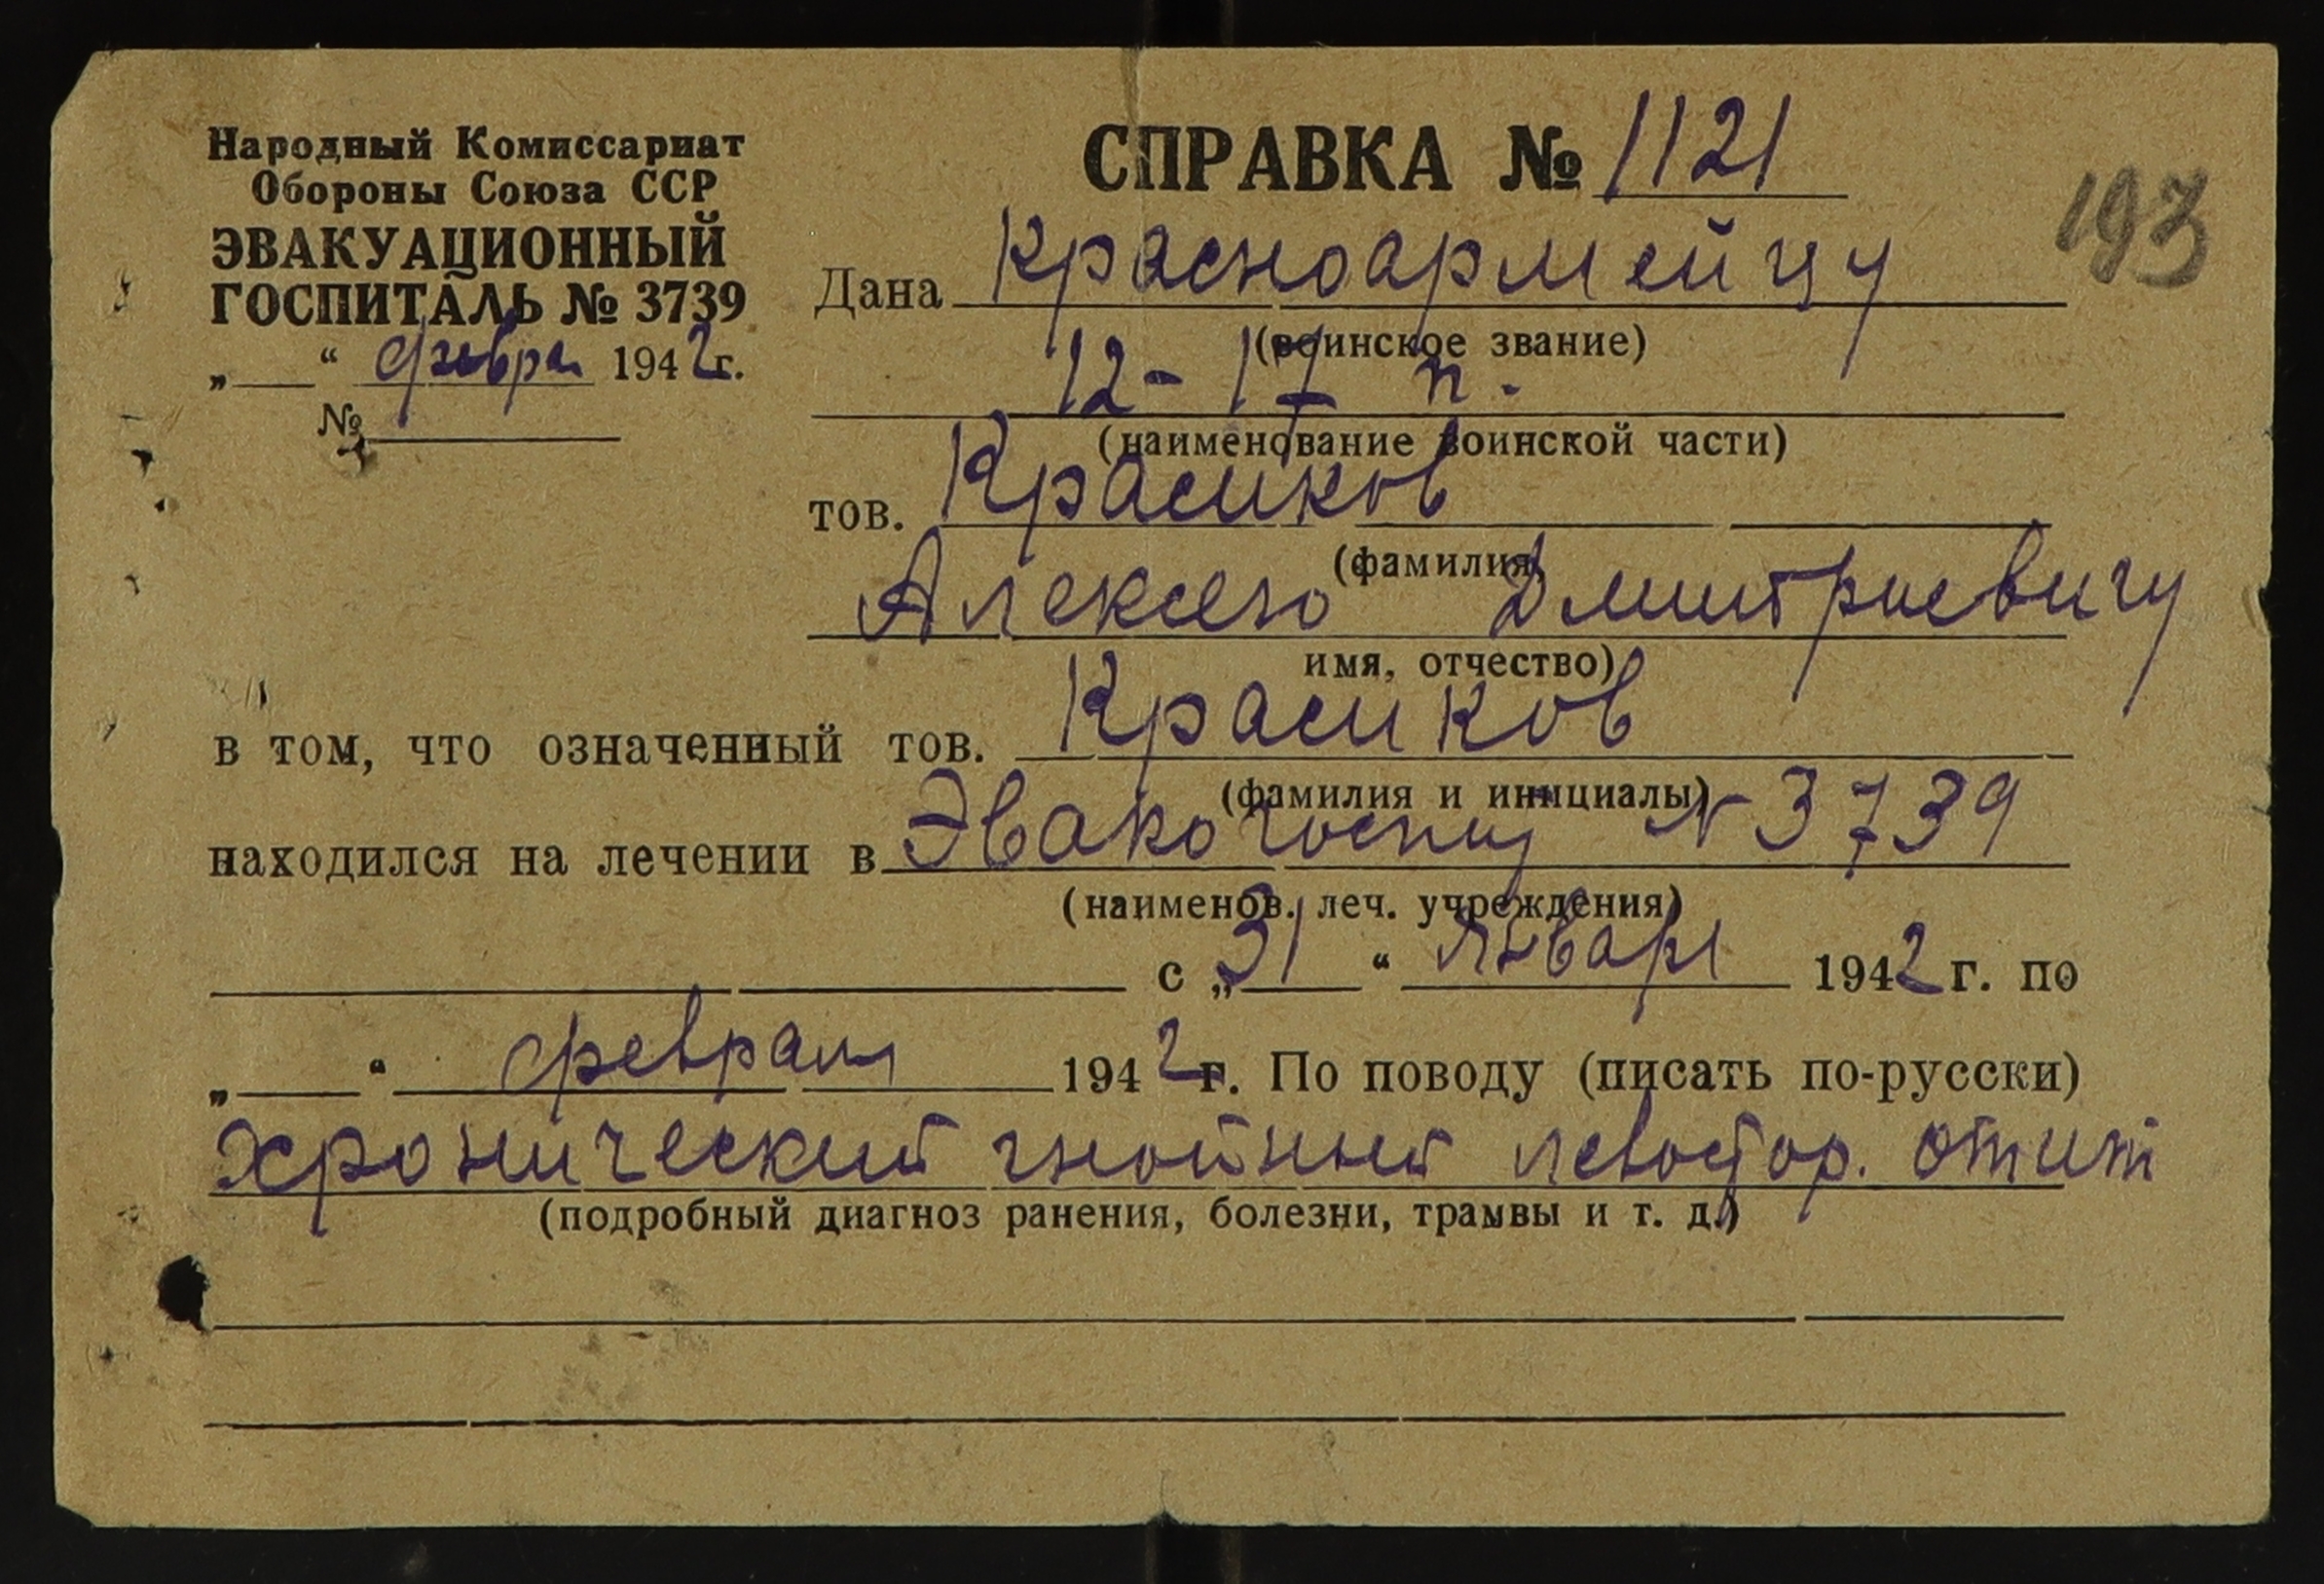 Народный Комиссариат
Обороны Союза ССР
ЭВАКУАЦИОННЫЙ
ГОСПИТАЛЬ № 3739
„ “ февра 1942г.
№
СПРАВКА № 1121
193
Дана Красноармейцу
(воинское звание)
12-17 п.
(наименование воинской части)
тов. Красиков
(фамилия,
Алексею Дмитриевичу
имя, отчество)
в том, что означенный тов. Красиков
(фамилия и инициалы)
находился на лечении в Эвакогоспит N 3739
(наименов. леч. учреждения)
с „31 “ Января 1942 г. по
„ “ февраля 1942 г. По поводу (писать по-русски)
хронический гнойный левостор. отит
(подробный диагноз ранения, болезни, трамвы и т. д.)